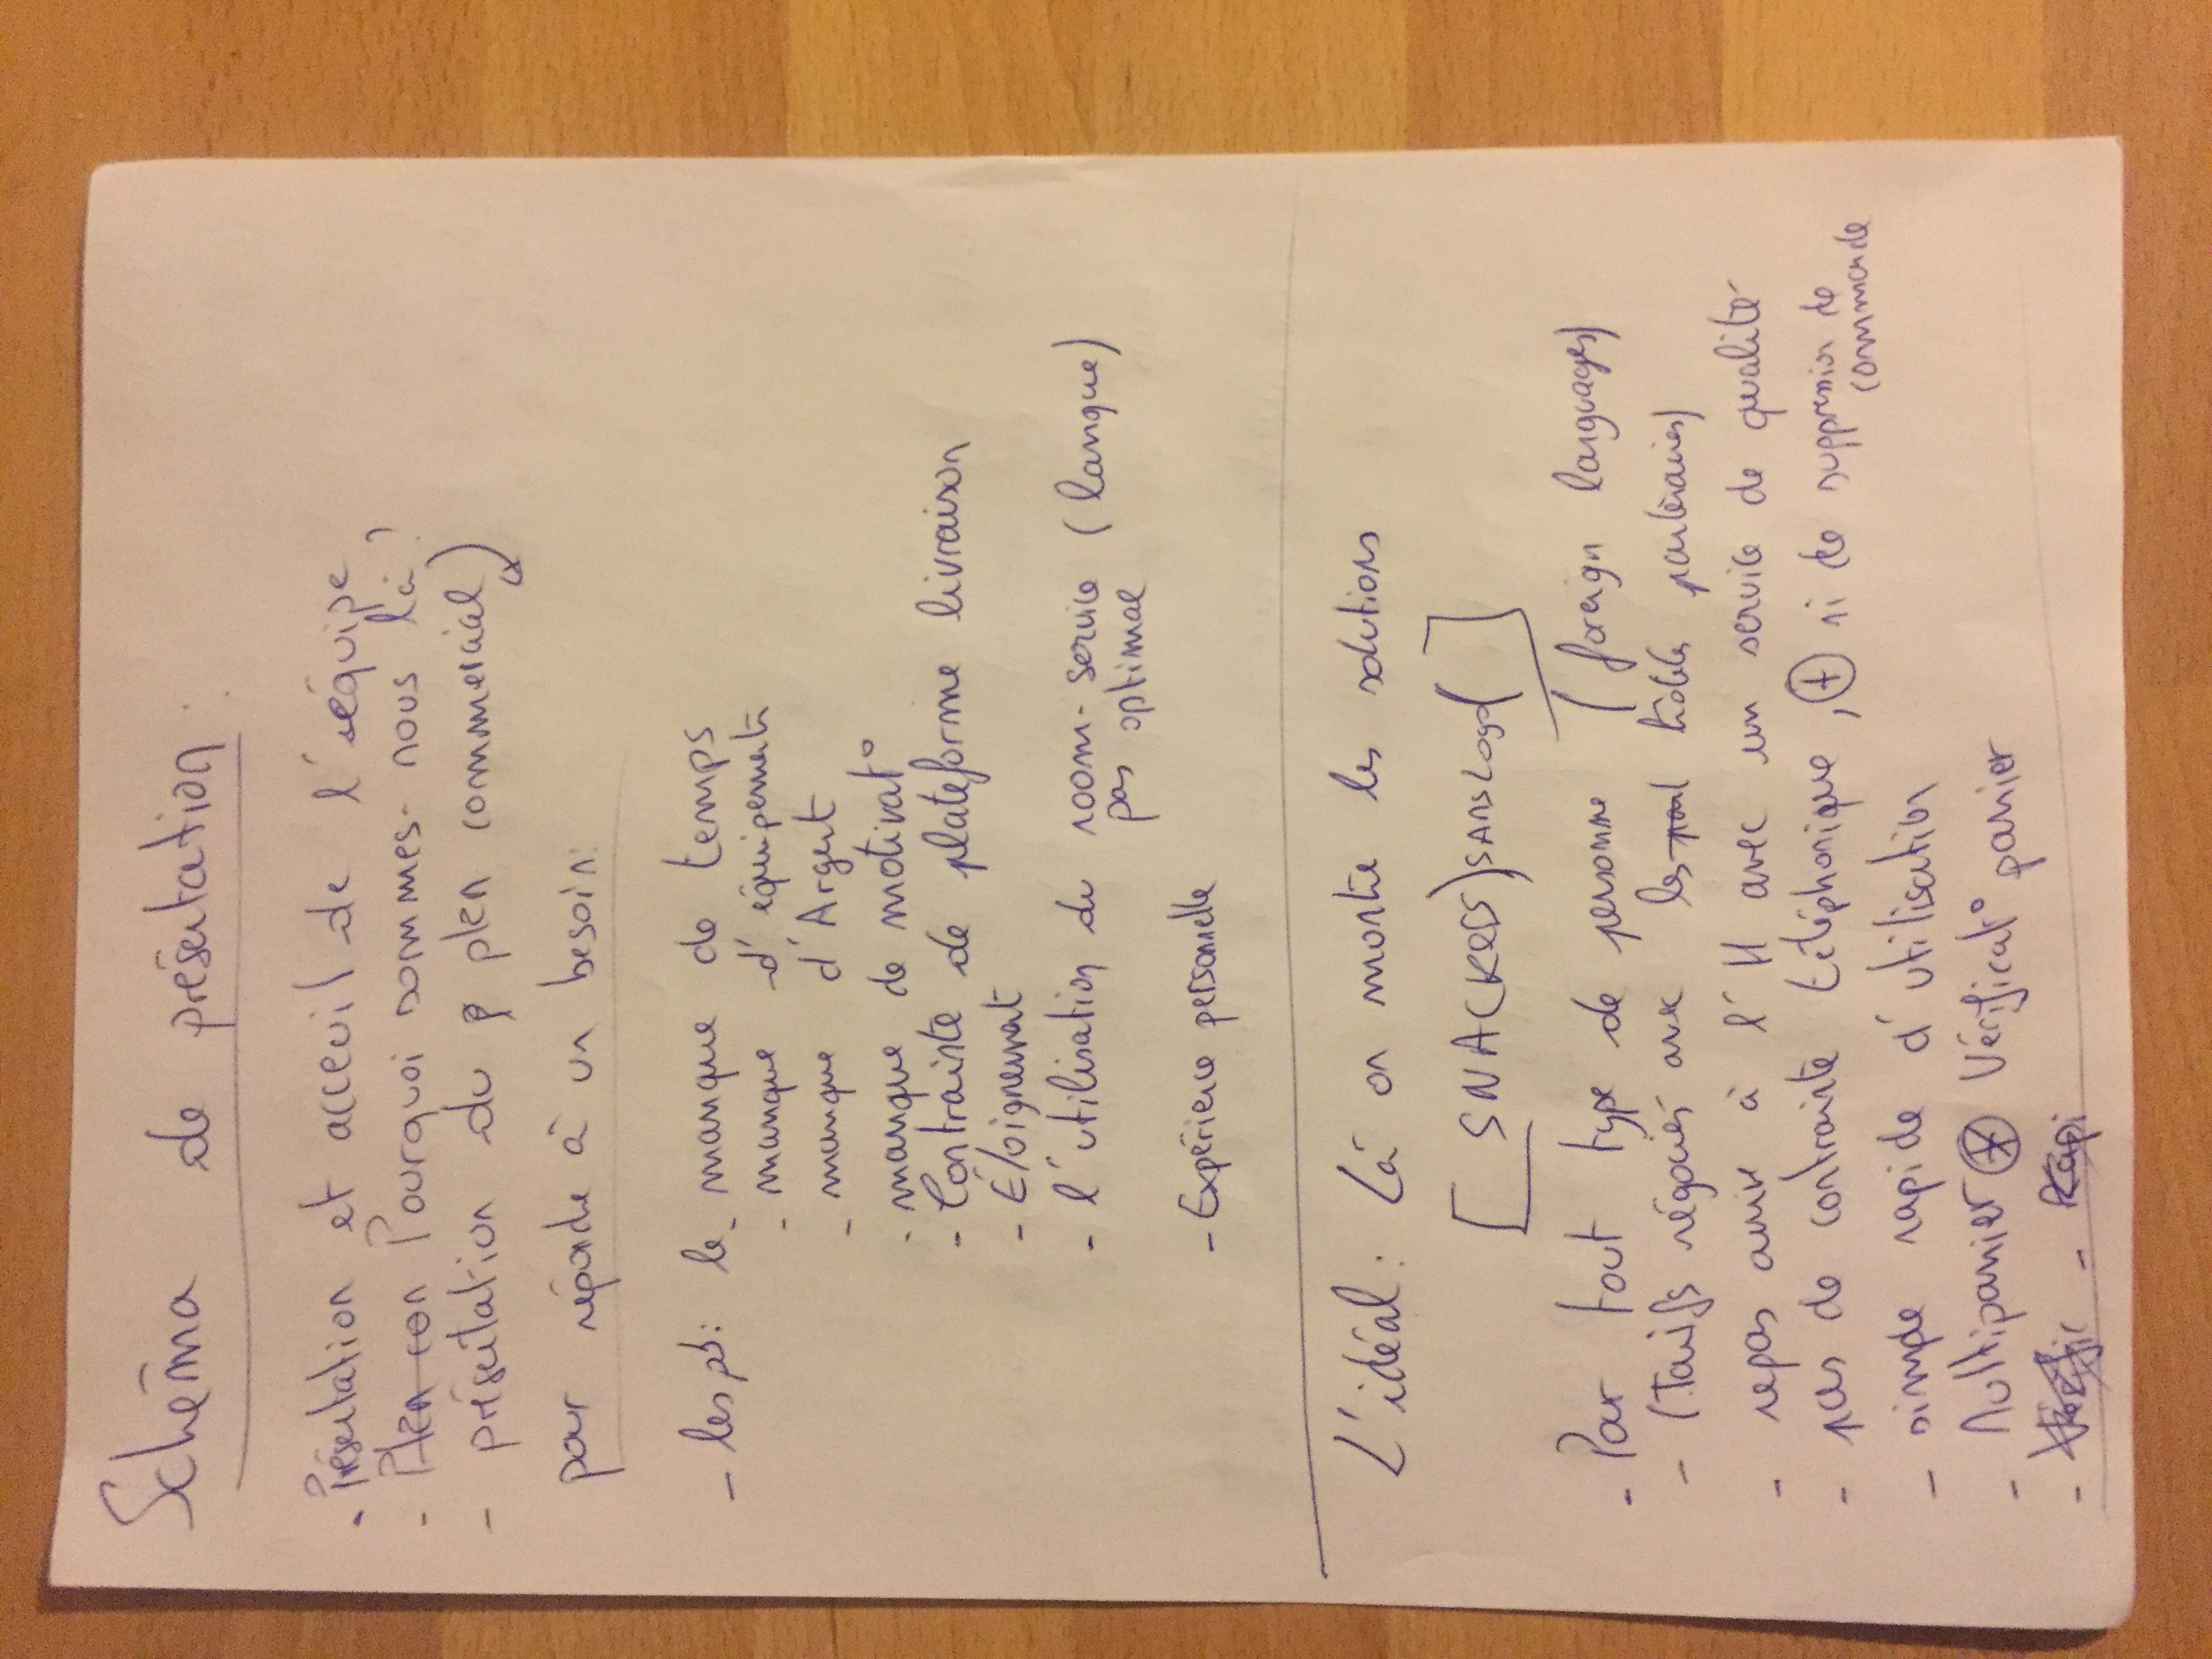 Schéma de présentation :
- Présentation et acceuil de l'équipe
- Plan con Pourquoi sommes-nous là ?
- présentation du plan commercial
pour répondre à un besoin :
- les pb : le manque de temps
- manque d'équipement
- manque d'Argent
- manque de motivat°
- Contrainte de plateforme livraison
- Éloignement
- l'utilisation du room-service (langue)
pas optimal
- Expérience personnelle
L'idéal : Là on montre les solutions
[ SNACKERS) SANS Logo( ]
- Pour tout type de personne (foreign languages)
- (Tarifs négociés avec les hôtels partenaires)
- repas arrive à l'H avec un service de qualité
- pas de contrainte téléphonique, + si de suppression de
commande
- simple rapide d'utilisation
- Multipanier + Vérificat° panier
- Verific - Rapi